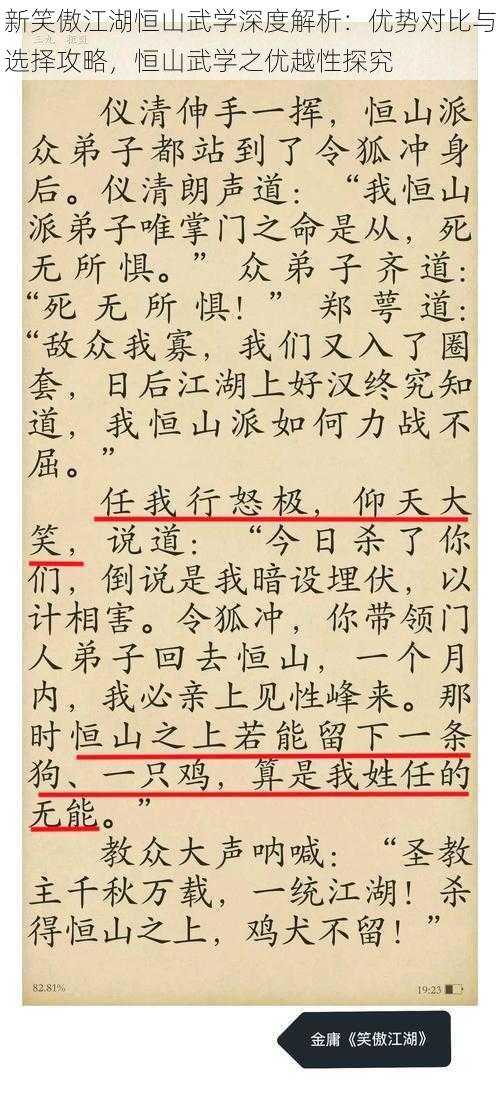 新笑傲江湖恒山武学深度解析：优势对比与
选择攻略，恒山武学之优越性探究
仪清伸手一挥，恒山派
众弟子都站到了令狐冲身
后。仪清朗声道：“我恒山
派弟子唯掌门之命是从，死
无所惧。”众弟子齐道：
“死无所惧！”郑萼道：
“敌众我寡，我们又入了圈
套，日后江湖上好汉终究知
道，我恒山派如何力战不
屈。”
任我行怒极，仰天大
笑，说道：“今日杀了你
们，倒说是我暗设埋伏，以
计相害。令狐冲，你带领门
人弟子回去恒山，一个月
内，我必亲上见性峰来。那
时恒山之上若能留下一条
狗、一只鸡，算是我姓任的
无能。”
教众大声呐喊：“圣教
主千秋万载，一统江湖！杀
得恒山之上，鸡犬不留！”
82.81%
19:23
金庸《笑傲江湖》